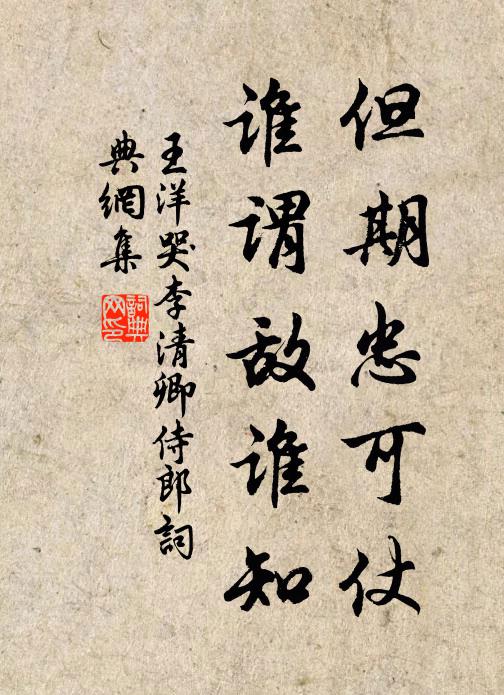 但期忠可仗
谁谓敌谁知
王洋哭李清卿侍郎詞
典網集
詞典网印